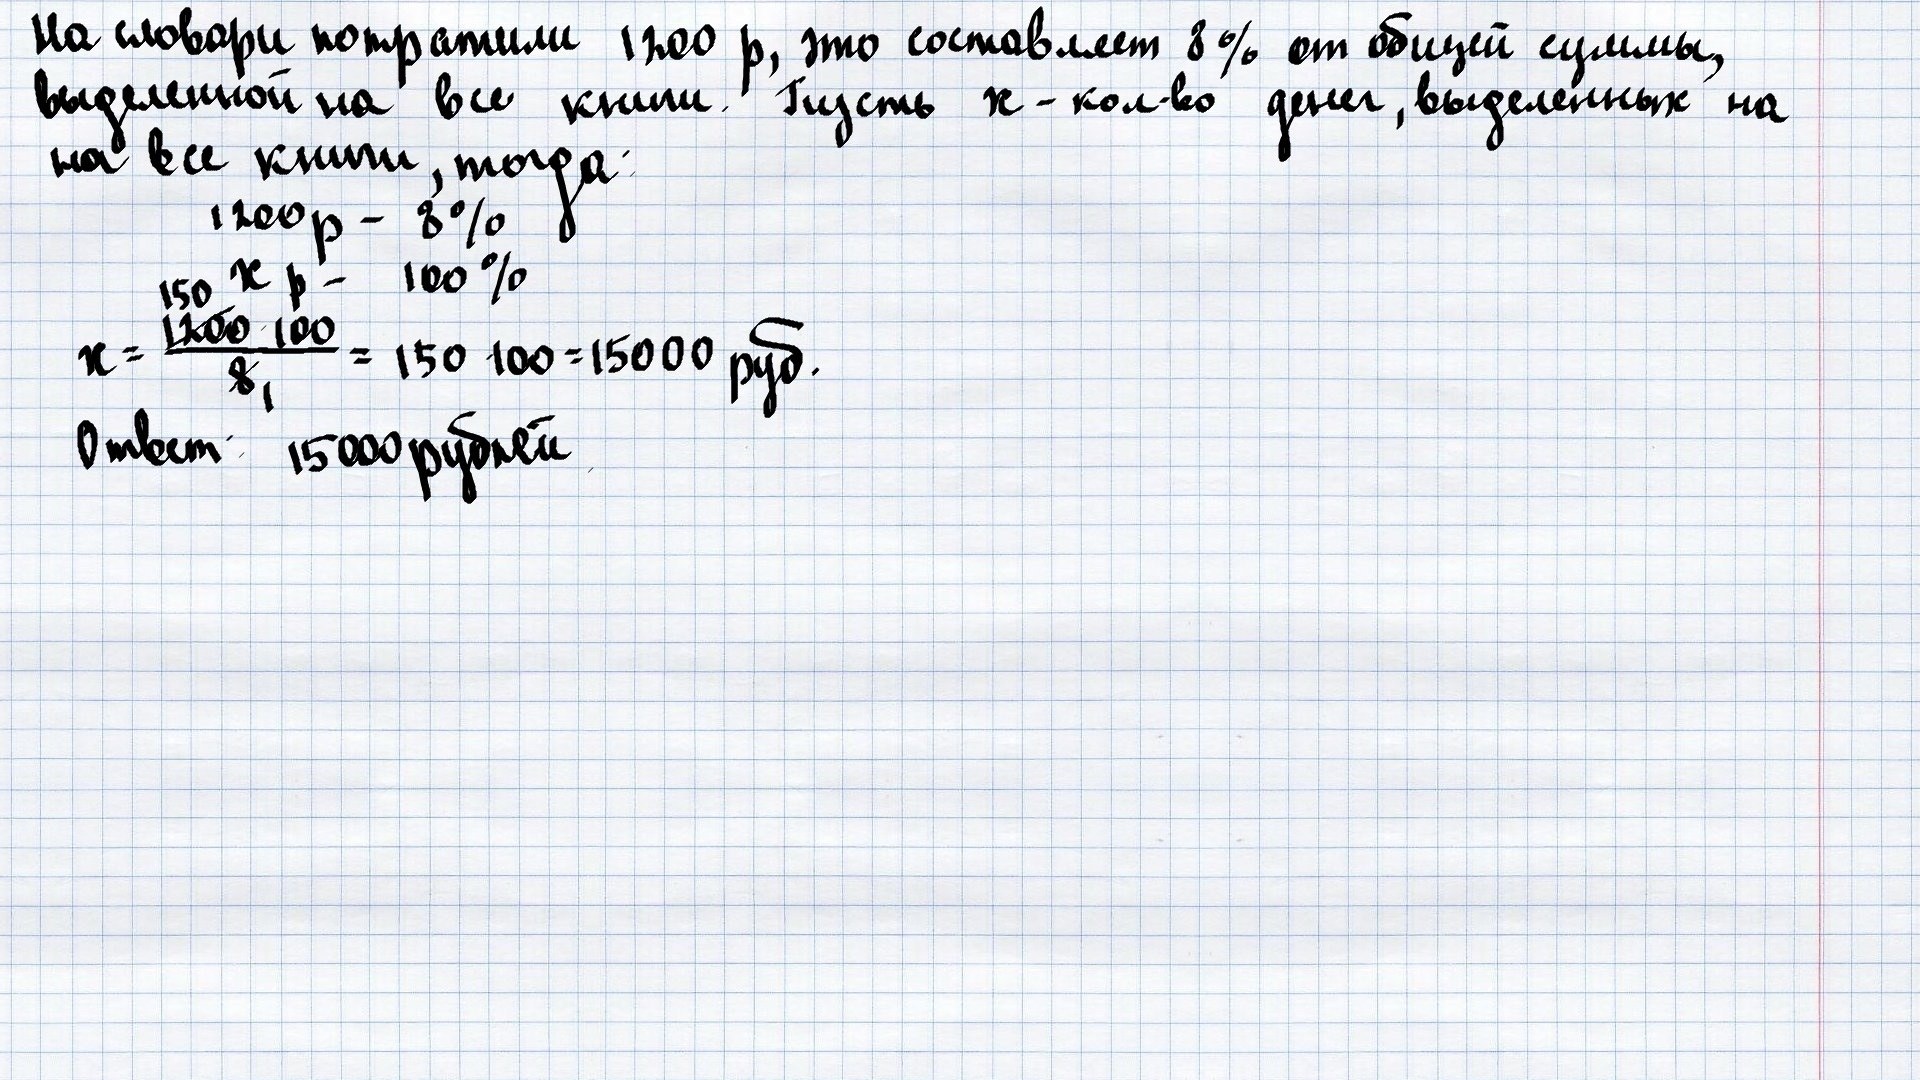 На словари потратили 1200 р, это составляет 8% от общей суммы,
выделенной на все книги. Пусть х - кол-во денег, выделенных на
на все книги, тогда:
1200 р - 8%
х р - 100%
х = 1200 · 100 / 8 = 150 · 100 = 15000 руб.
150
1
Ответ: 15000 рублей